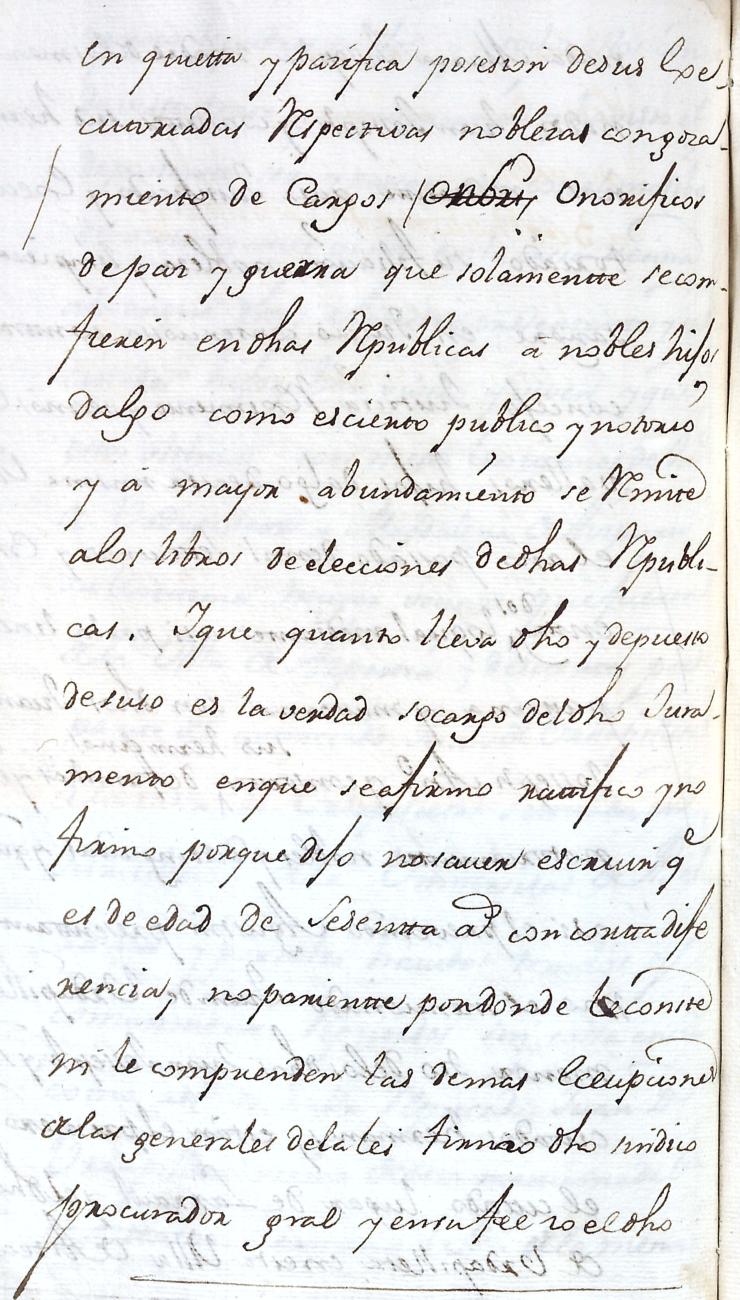 en quietta y pazifica posesion desus Exe
cutoriadas Respectivas noblezas congoza-
miento de Cargos / Onorificos
depaz y guerra que solamentte secon-
fieren endhas Republicas â nobles hijos
dalgo como esciento publico ynotorio
y â mayor abundamiento se Rmite
alos libros de elecciones dedhas Republi-
cas. Yque quanto lleva dho y depuesto
desuso es la verdad socargo deldho Jura-
mento enque seafirmo rattifico yno
firmo porque dijo nosaver escriuir q^e
es de edad de Sesentta a^s con conttadife
rencia, nopariente pordonde leconste
ni le comprenden las demas Excepciones
alas generales delalei firmó dho sindico
procurador gral y ensufee yo eldho